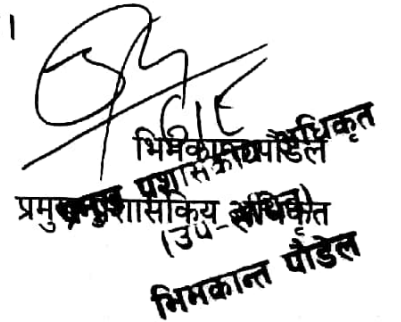 ।
भिमकान्त पौडेल
प्रमुख प्रशासकिय अधिकृत
प्रमुख प्रशासकीय अधिकृत
(उप-सचिव)
भिमकान्त पौडेल